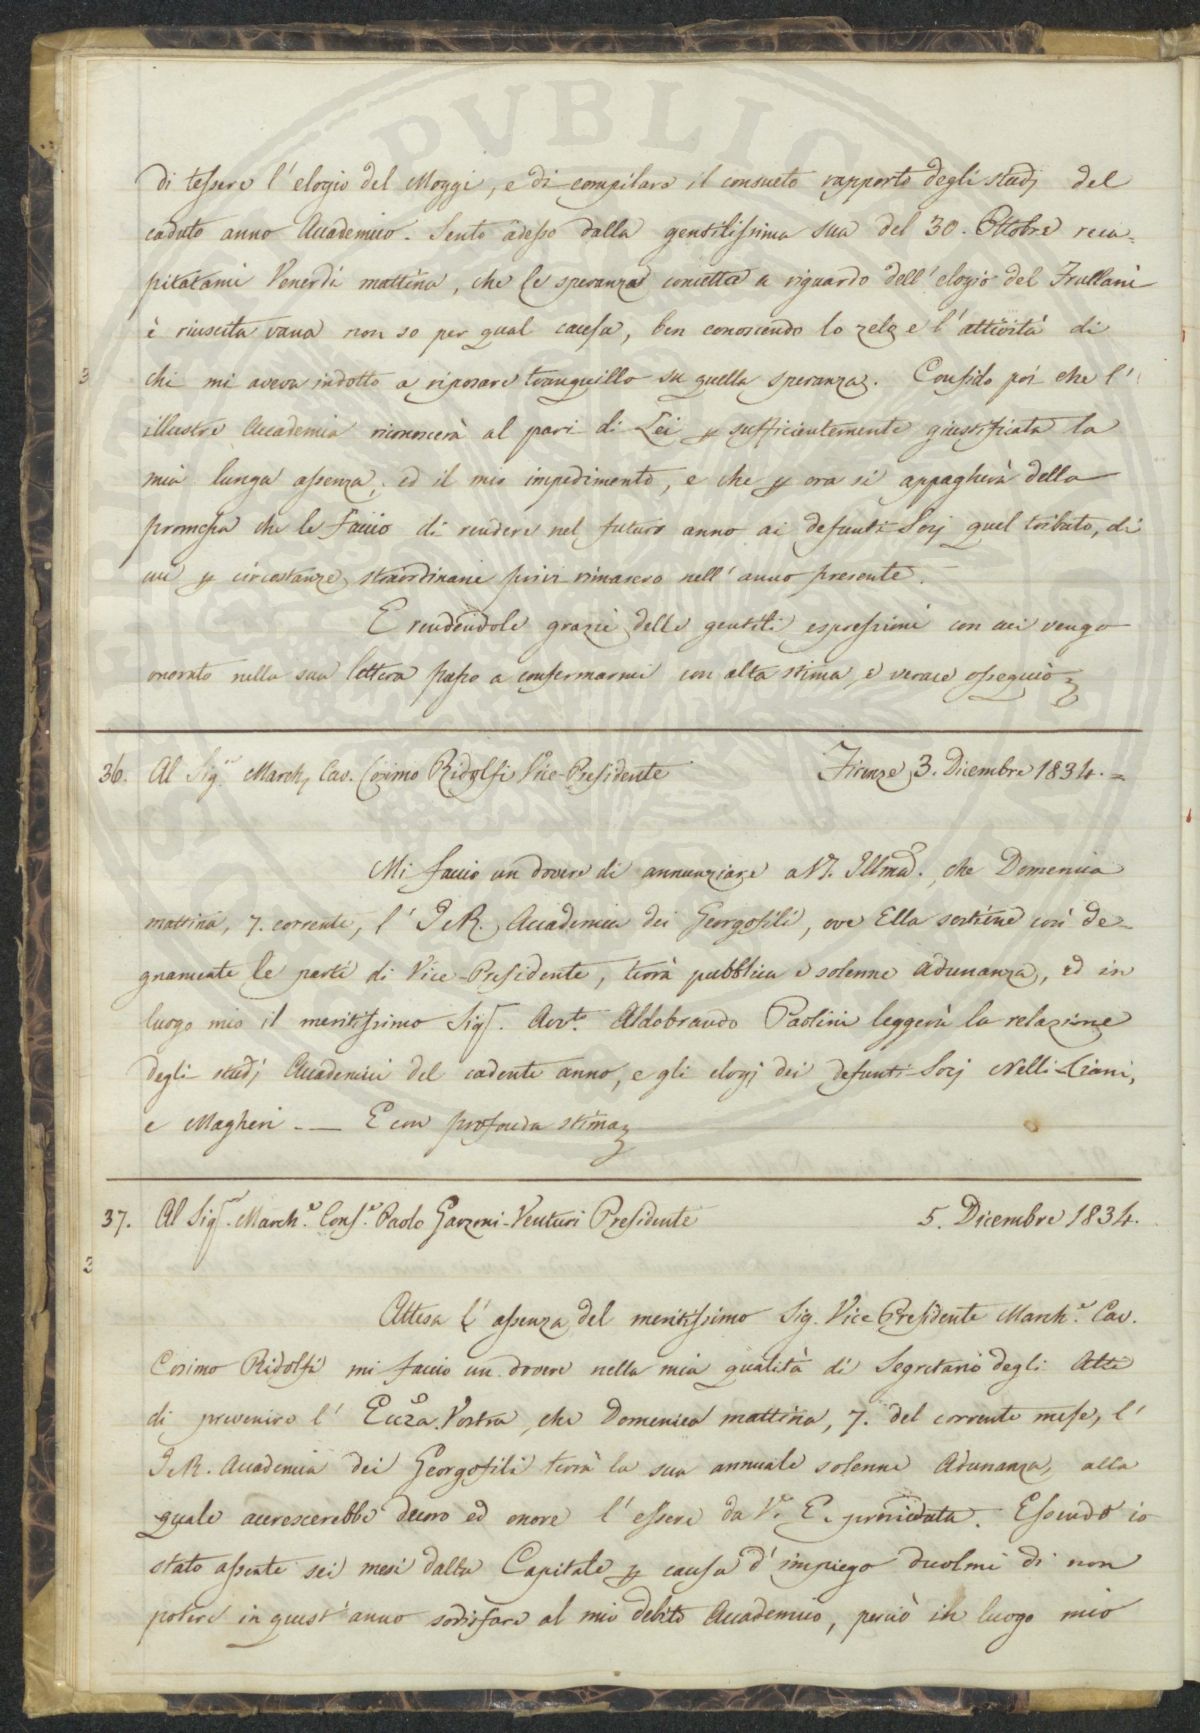 di tessere l'elogio del Moggi, e di compilare il consueto rapporto degli studj del
caduto anno Accademico. Sento adesso dalla gentilissima sua del 30. Ottobre reca=
pitatami Venerdì mattina, che le speranza concetta a riguardo dell'elogio del Frullani
è riuscita vana non so per qual causa, ben conoscendo lo zelo e l'attività di
chi mi aveva indotto a riposare tranquillo su quella speranza. Confido poi che l'
illustre Accademia riconoscerà al pari di Lei p sufficientemente giustificata la
mia lunga assenza, ed il mio impedimento, e che p ora si appagherà della
promessa che le faccio di rendere nel futuro anno ai defunti Socj quel tributo, di
cui p circostanze straordinarie privi rimasero nell'anno presente.
E rendendole grazie delle gentili espressioni con cui vengo
onorato nella sua lettera passo a confermarmi con alta stima, e verace ossequio
36. Al Sig.r March. Cav. Cosimo Ridolfi Vice-Presidente Firenze 3. Dicembre 1834.=
Mi faccio un dovere di annunziare a V. Illma. che Domenica
mattina, 7. corrente, l'I e R. Accademia dei Georgofili, ove Ella sostiene così de=
gnamente le parti di Vice-Presidente, terrà pubblica e solenne adunanza, ed in
luogo mio il meritissimo Sig.r Avv.to Aldobrando Paolini leggerà la relazione
degli studj Accademici del cadente anno, e gli elogj dei defunti Socj Nelli-Ciani,
e Magheri .— E con profonda stima
37. Al Sig.r March.e Cons.e Paolo Garzoni-Venturi Presidente 5. Dicembre 1834.
Attesa l'assenza del meritissimo Sig. Vice Presidente March.e Cav.
Cosimo Ridolfi mi faccio un dovere nella mia qualità di Segretario degli Atti
di prevenire l'Eccza. Vostra, che Domenica mattina, 7. del corrente mese, l'
I e R. Accademia dei Georgofili terrà la sua annuale solenne Adunanza, alla
quale accrescerebbe decoro ed onore l'essere da V. E. presieduta. Essendo io
stato assente sei mesi dalla Capitale p causa d'impiego duolmi di non
potere in quest'anno sodisfare al mio debito Accademico, perciò in luogo mio